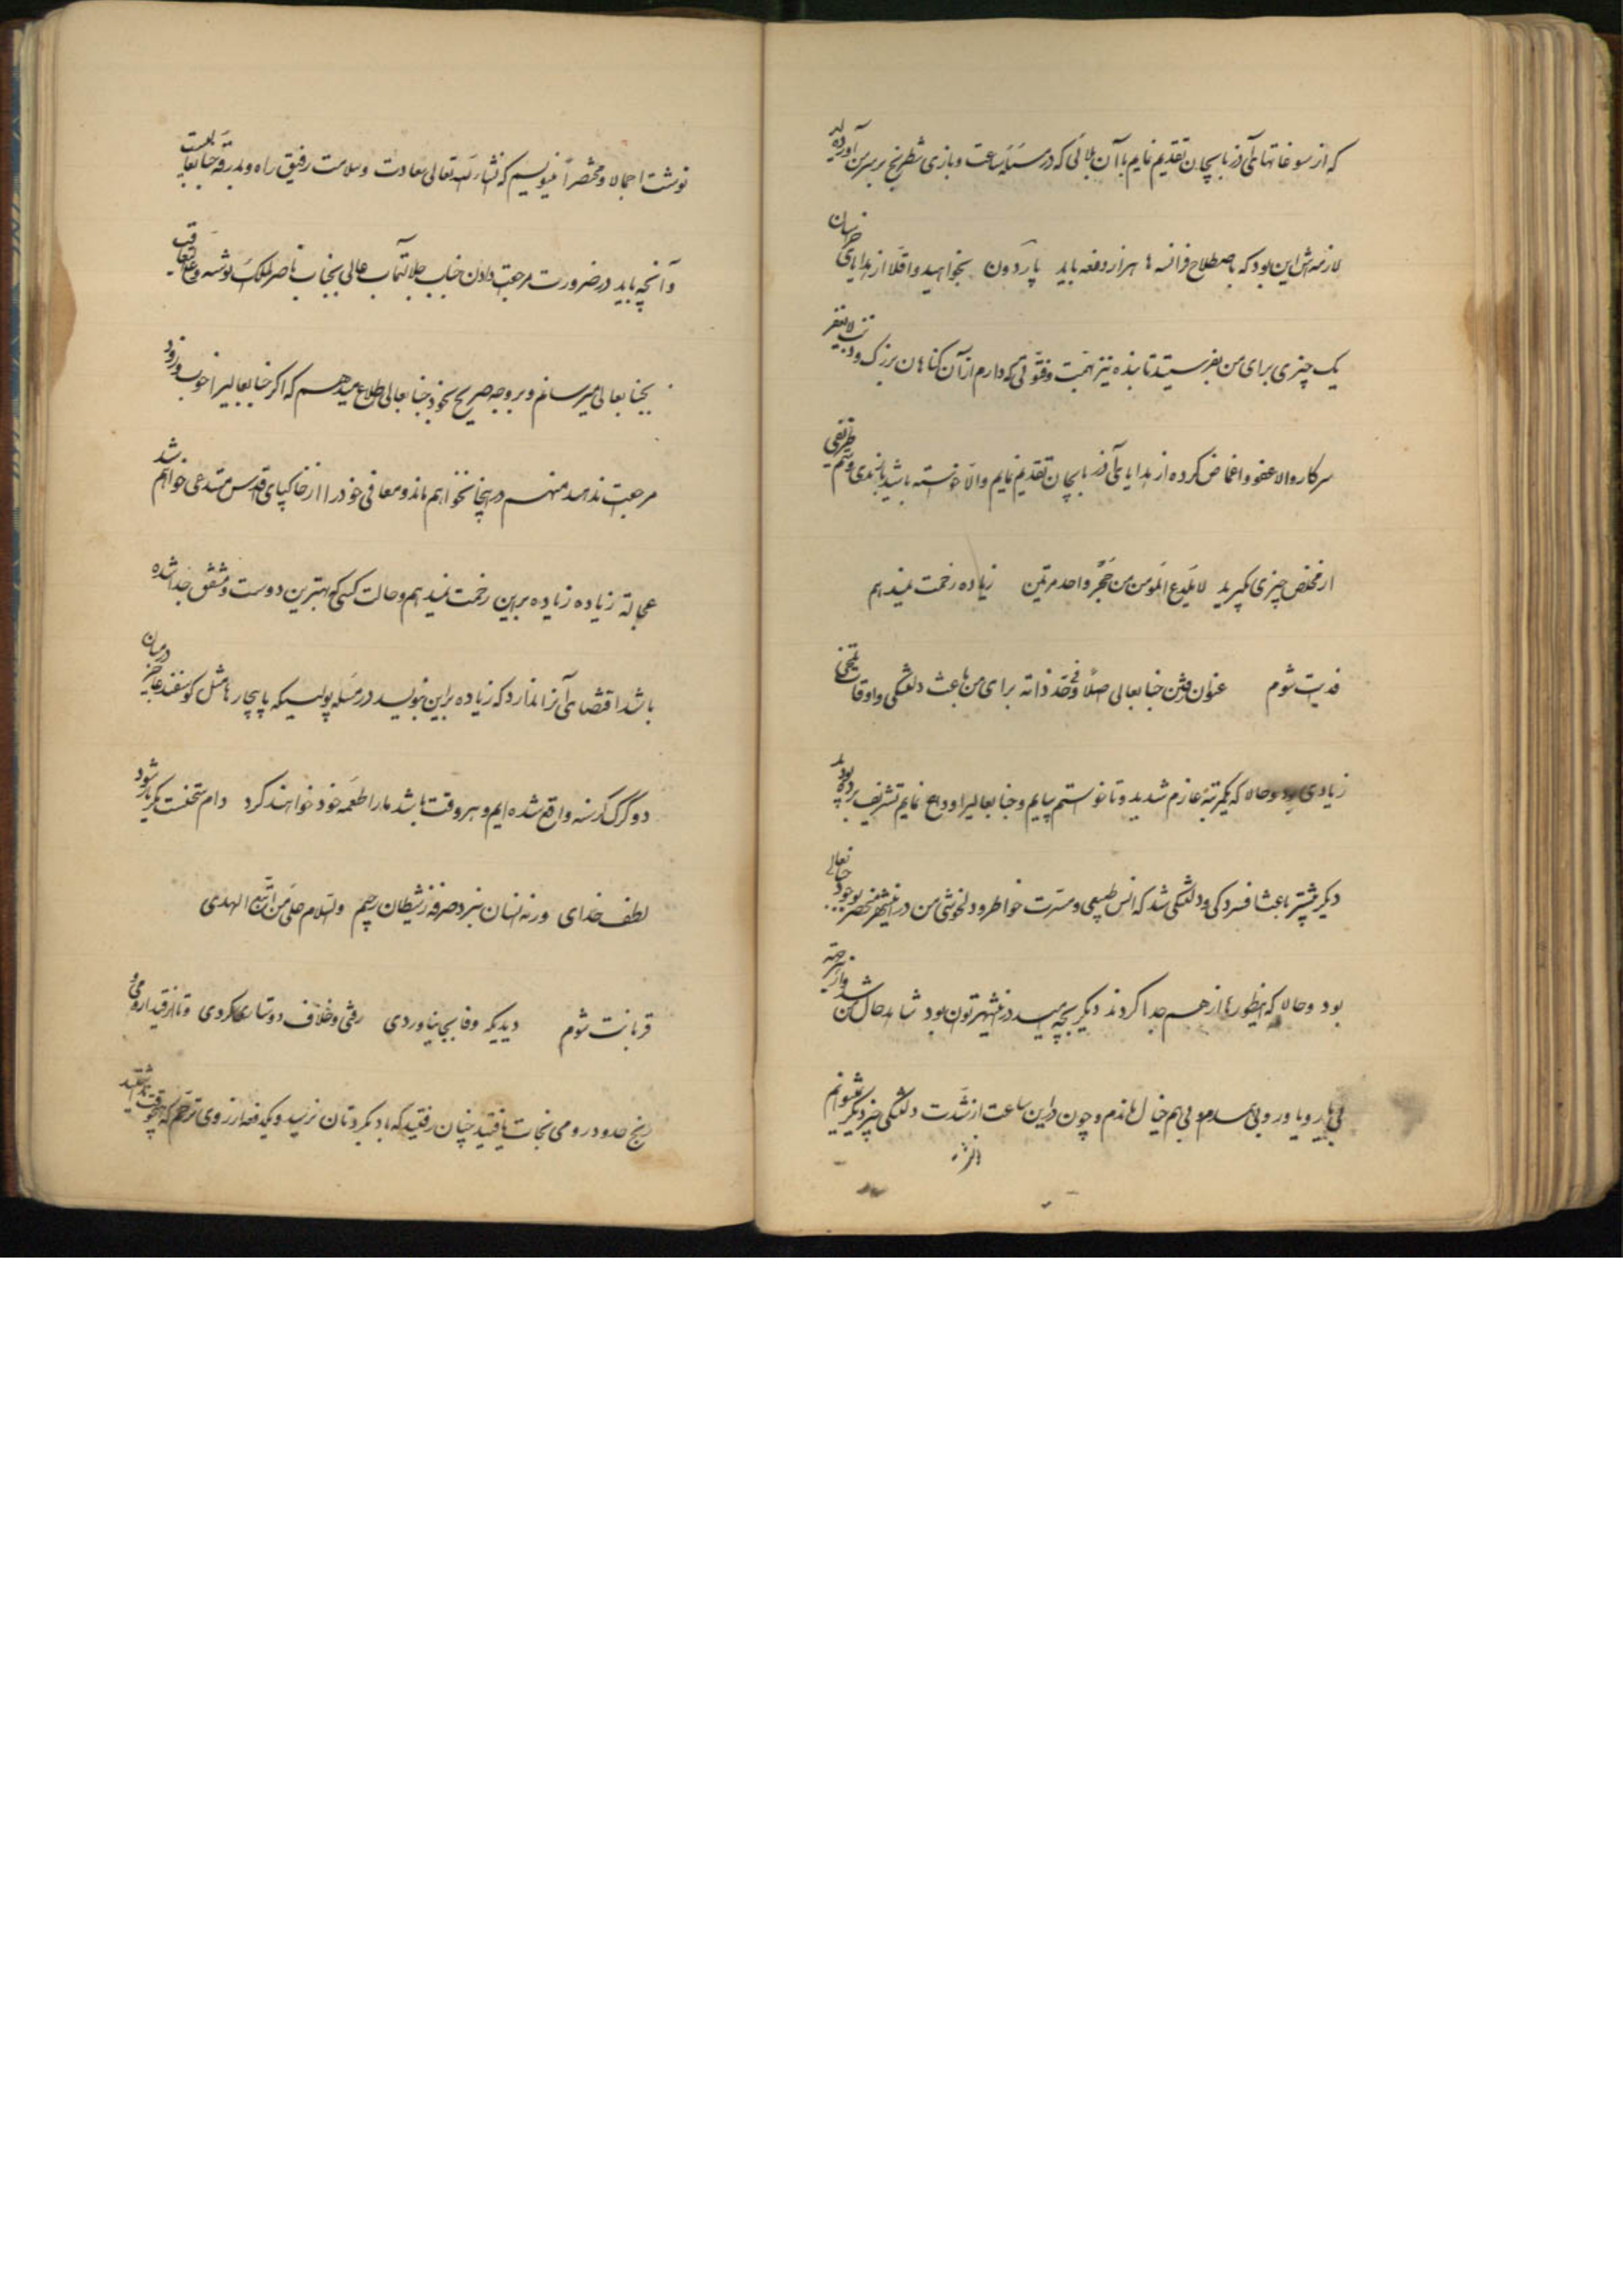 که از سوغاتهای آذربایجان تقدیم نمایم با آن بلائی که در مسئله ساعت و بازی شطرنج بر سر من آورده اید
لازمه اش این بود که باصطلاح فرانسه ها هزار دفعه باید پاردون بخواهید و اقلا از هدایای خراسان
یک چیزی برای من بفرستید تا بنده نیز همت و فتوتی که دارم از آن گناهان بزرگ و ذنب لایغفر
سرکار والا عفو و اغماض کرده از هدایای آذربایجان تقدیم نمایم و الا خواسته باشید
از مخلص چیزی بگیرید لا یلدغ المومن من جحر واحد مرتین زیاده زحمت نمیدهم
فدیت شوم عنوان رفتن جنابعالی اصلا و فی حد ذاته برای من باعث دلتنگی و اوقات تلخی
زیادی بود و حالا که یکمرتبه عازم شدید و نتوانستم بیایم و جنابعالیرا وداع نمایم تشریف برده بودید
دیگر بیشتر باعث افسردگی و دلتنگی شد که انس طبیعی و مسرت خواطر و دلخوشی من در اینشهر منحصر بوجود جنابعالی
بود و حالا که اینطورها از هم جدا کردند دیگر بچه امید در اینشهر توان بود شاهد حال من
بی یار و یاور و بی همدم و بی هم خیال ماندم و چون در این ساعت از شدت دلتنگی چیز دیگر نمیتوانم
نوشت اجمالا و مختصراً مینویسم که انشاءالله تعالی سعادت و سلامت رفیق راه و بدرقه جنابعالی است
و آنچه باید در ضرورت مرجعت دادن جناب جلالتمآب عالی بجناب ناصرالملک نوشته و
بجنابعالی میرسانم و بر وجه صریح بخود جنابعالی اطلاع میدهم که اگر جنابعالیرا خوب و زود
مرجعت ندهند منهم در اینجا نخواهم ماند و معافی خود را از خاکپای اقدس مستدعی خواهم شد
عجالة زیاده زیاده بر این زحمت نمیدهم و حالت کسی که بهترین دوست و مشفق جدا شده
باشد اقتضای آنرا ندارد که زیاده بر این بنویسد در مسئله پولیسیکه ما بیچاره ها مثل گوسفند عاجز در میان
دو گرگ گرسنه واقع شده ایم و هر وقت باشد ما را طعمه خود خواهند کرد دام سختست مگر یار شود
لطف خدای ورنه انسان نبرد صرفه ز شیطان رجیم والسلام علی من اتبع الهدی
قربانت شوم دیدیکه وفا بجا نیاوردی رفتی و خلاف دوستاری کردی و تا از قید ارومی و
رنج حدود رومی نجات یافتید چنان رفتید که باد بگردتان نرسید و یکدفعه از روی ترحم